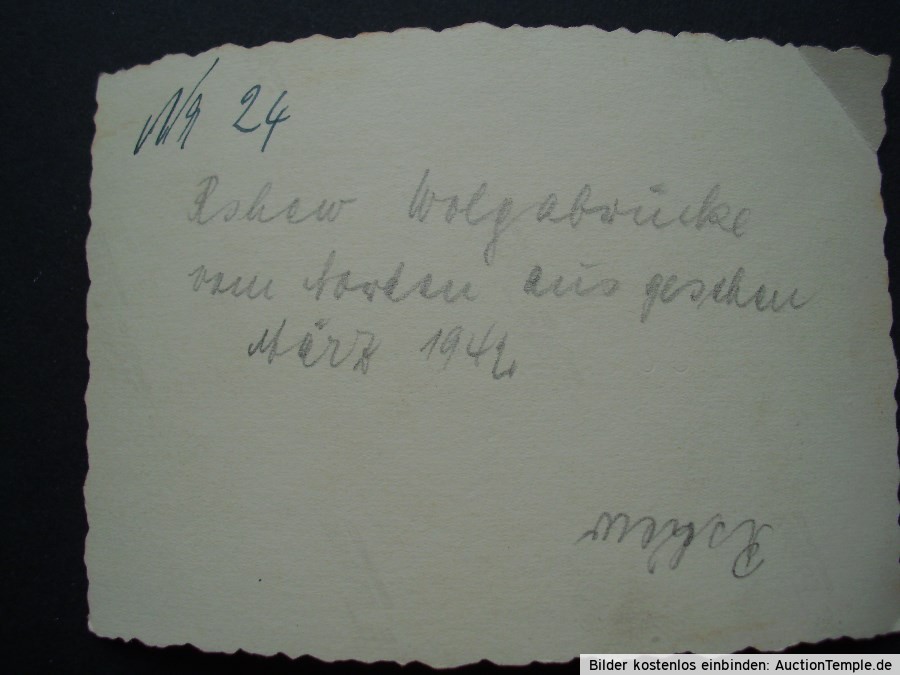 Nr 24
Rshew Wolgabrücke
vom Norden aus gesehen
März 1942.
Rshew
Bilder kostenlos einbinden: AuctionTemple.de